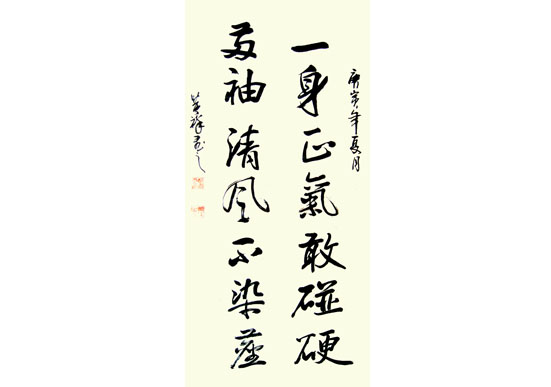 庚寅年夏月
一身正氣敢碰硬
兩袖清風不染塵